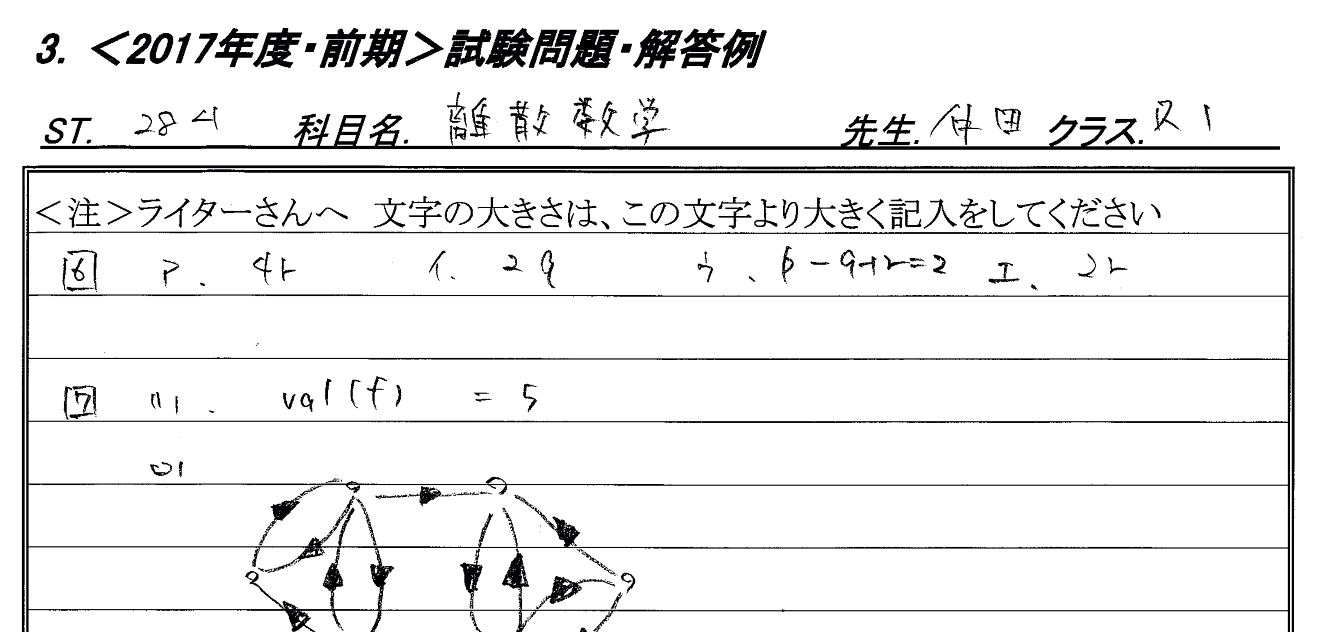 3. ＜2017年度・前期＞試験問題・解答例
ST. 284 科目名. 離散数学 先生. 仲田 クラス. R1
＜注＞ライターさんへ 文字の大きさは、この文字より大きく記入をしてください
6 ア. 4r イ. 2q ウ. p-q+r=2 エ. 2r
7 (1). val(f) = 5